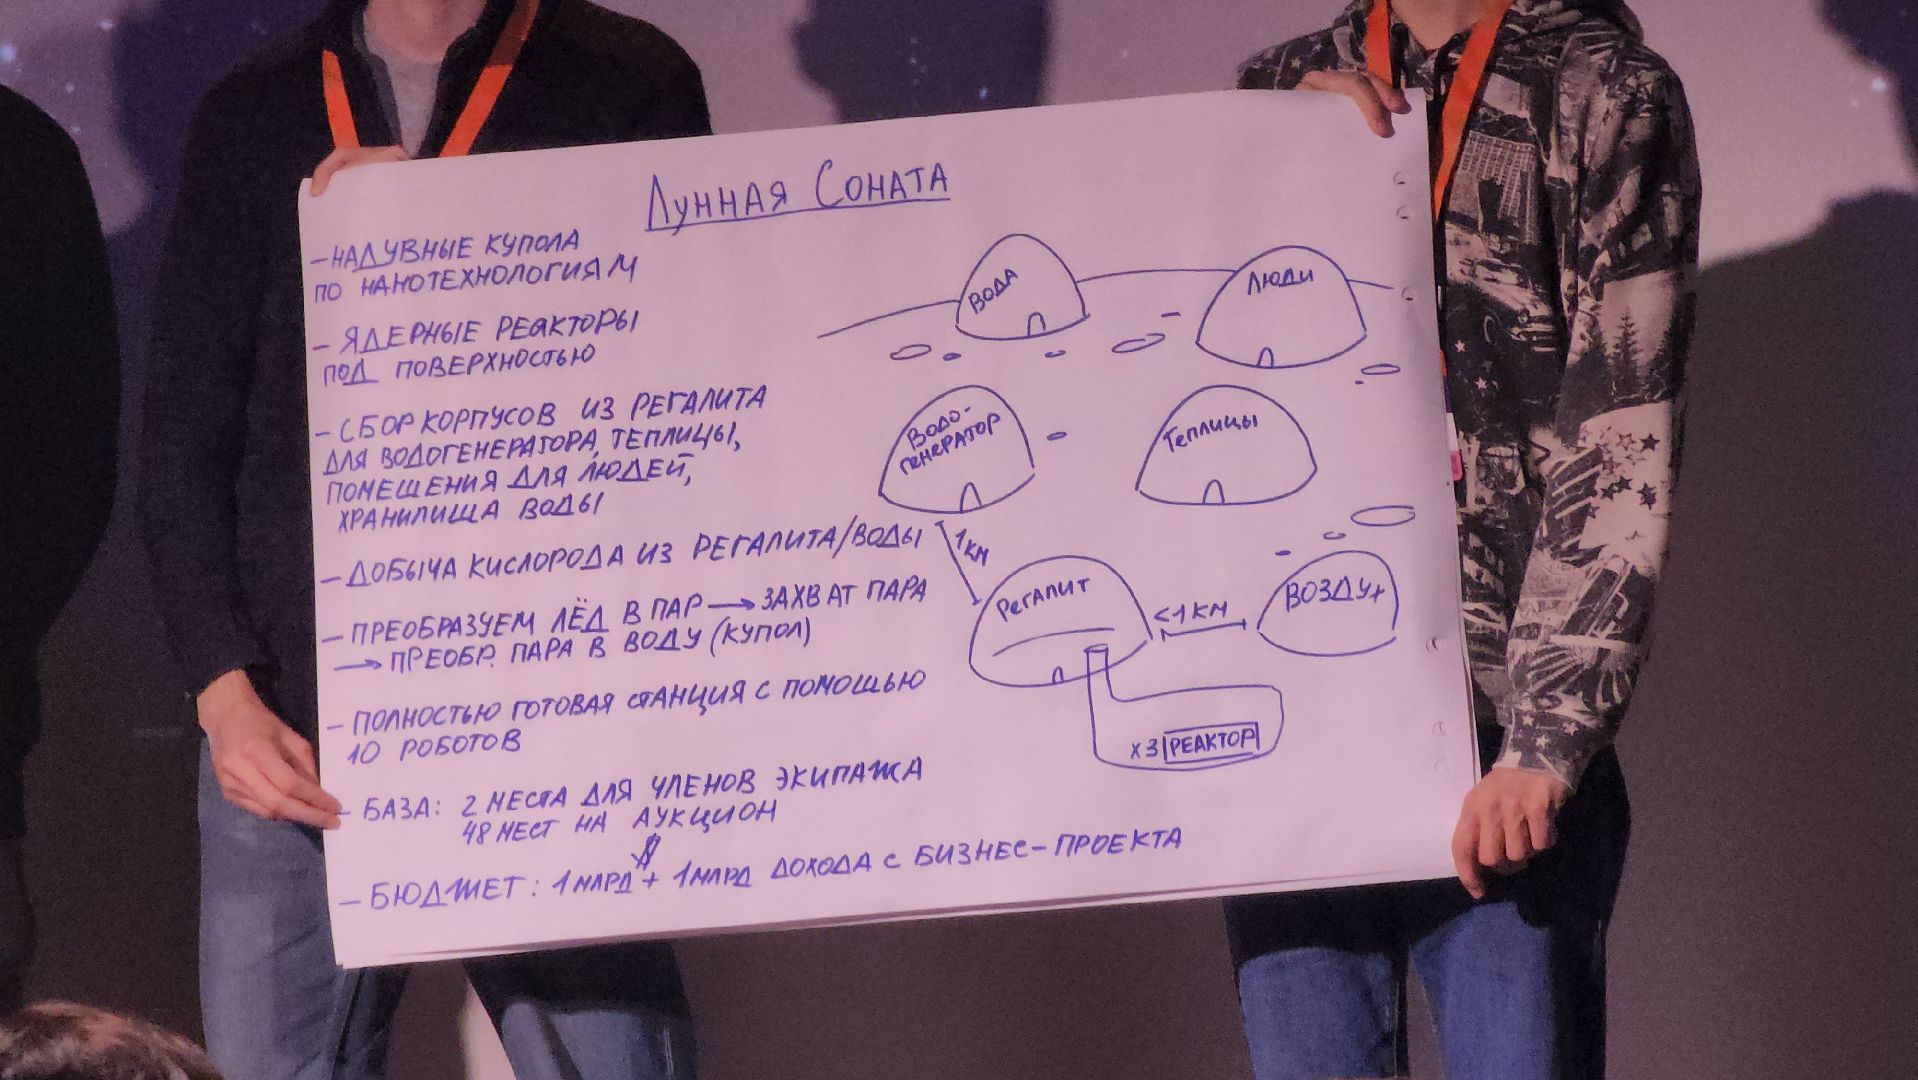 Лунная Соната
– НАДУВНЫЕ КУПОЛА
ПО НАНОТЕХНОЛОГИЯМ
– ЯДЕРНЫЕ РЕАКТОРЫ
ПОД ПОВЕРХНОСТЬЮ
– СБОР КОРПУСОВ ИЗ РЕГАЛИТА
ДЛЯ ВОДОГЕНЕРАТОРА, ТЕПЛИЦЫ,
ПОМЕЩЕНИЯ ДЛЯ ЛЮДЕЙ,
ХРАНИЛИЩА ВОДЫ
– ДОБЫЧА КИСЛОРОДА ИЗ РЕГАЛИТА/ВОДЫ
– ПРЕОБРАЗУЕМ ЛЁД В ПАР → ЗАХВАТ ПАРА
→ ПРЕОБР. ПАРА В ВОДУ (КУПОЛ)
– ПОЛНОСТЬЮ ГОТОВАЯ СТАНЦИЯ С ПОМОЩЬЮ
10 РОБОТОВ
– БАЗА: 2 МЕСТА ДЛЯ ЧЛЕНОВ ЭКИПАЖА
48 МЕСТ НА АУКЦИОН
$
– БЮДЖЕТ: 1 МЛРД + 1 МЛРД ДОХОДА С БИЗНЕС-ПРОЕКТА
ВОДА
ЛЮДИ
Водо-
генератор
Теплицы
1 КМ
Регалит
<1 КМ
ВОЗДУХ
х3 РЕАКТОР